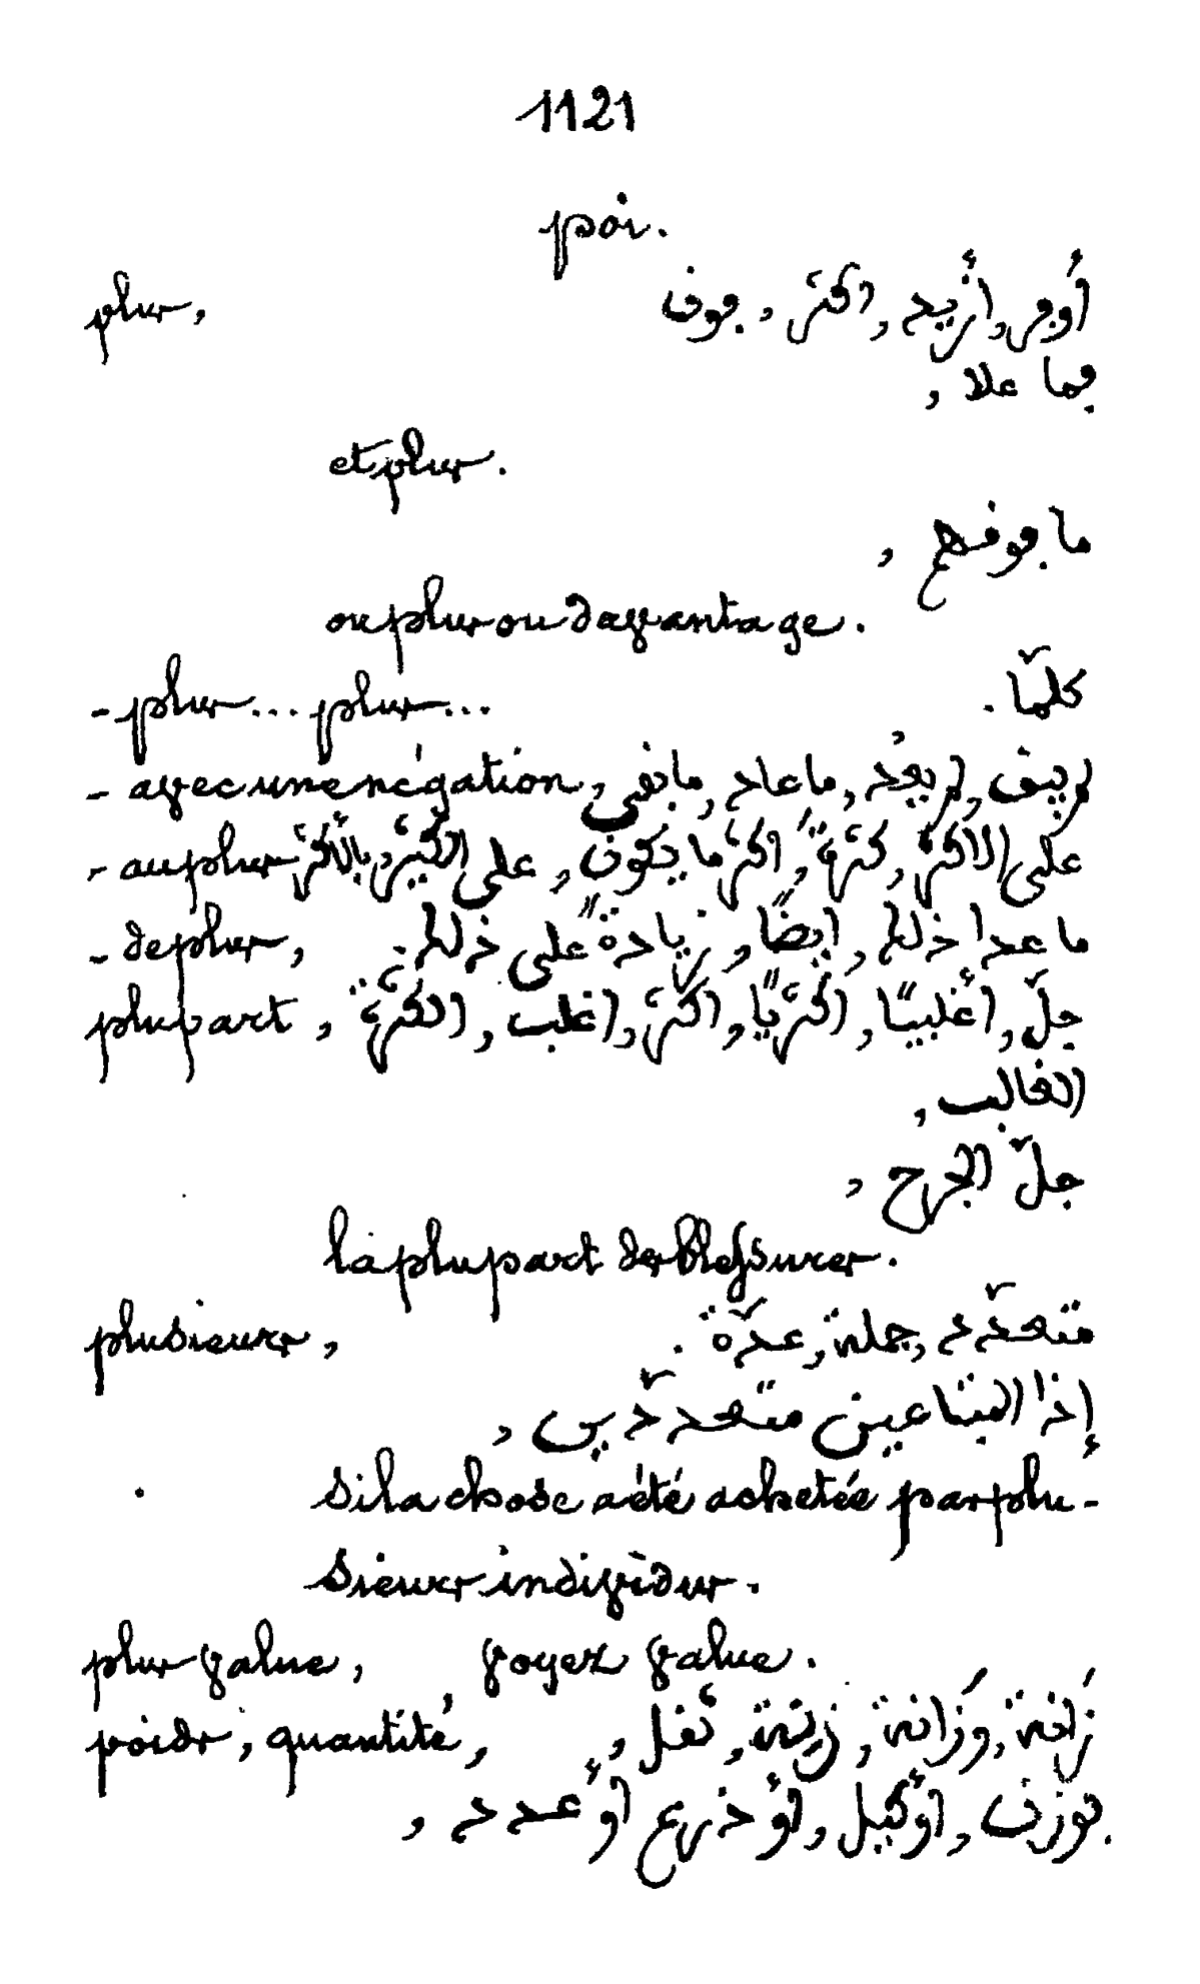 1121
poi.
plus, أُوفر, أزيد, اكثر, فوق
فما علا ,
et plus.
ما فوقهم ,
ou plus ou davantage.
- plus... plus... كلّما .
- avec une négation, لم يبق, لم يعُد, ما عاد, ما بقى
- au plus على الأكثر, كثرةً, اكثر ما يكون, على الكثير, بالأكثر
- de plus, ما عدا ذلك, ايضًا, زيادةً على ذلك.
plupart, جلّ, أغلبيًّا, اكثريًّا, اكثر, اغلب, الكثرة
الغالب ,
جلّ الجرح ,
la plupart des blessures.
plusieurs, متعدّد, جملة, عدّة .
إذا المبتاعين متعدّدين ,
si la chose a été achetée par plu-
sieurs individus.
plus value, voyez value.
poids, quantité, زَانة, وَزَانة, زينة, ثقل ,
بوزن, أو كيل, أو ذرع أو عدد ,